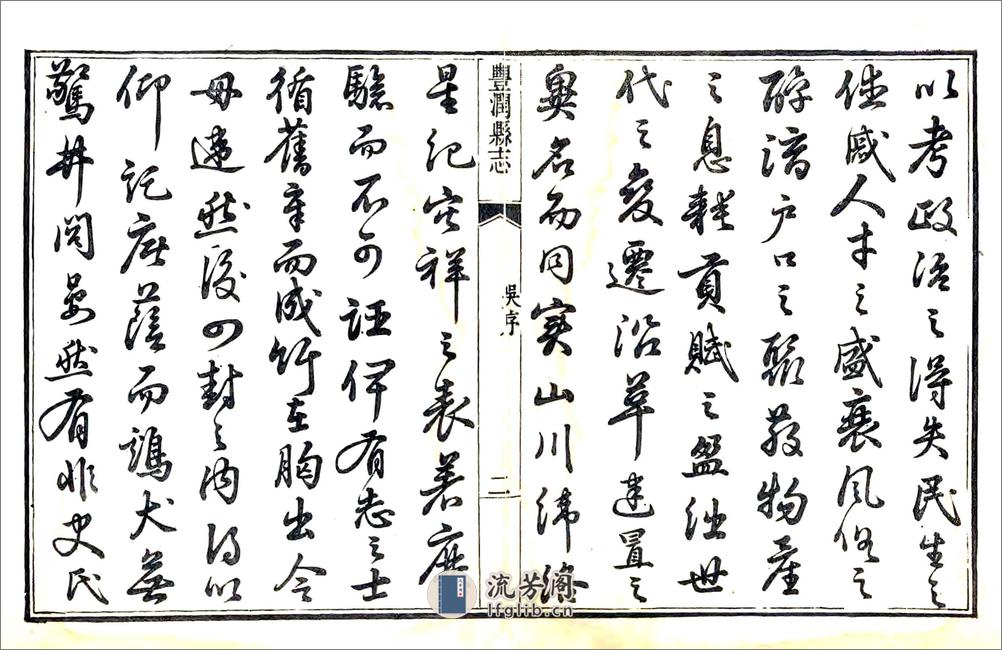 以考政治之得失民生之
休戚人才之盛衰風俗之
醇漓户口之聚散物產
之息耗貢賦之盈絀世
代之變遷沿革建置之
異名而同實山川緯絡
豐潤縣志
吳序
二
星紀灾祥之表著應
驗而不可誣俾有志之士
循舊章而成竹在胸出令
毋違然後四封之内得以
仰託庥蔭而鷄犬無
驚井閭晏然有非史氏
流芳阁
lfglib.cn